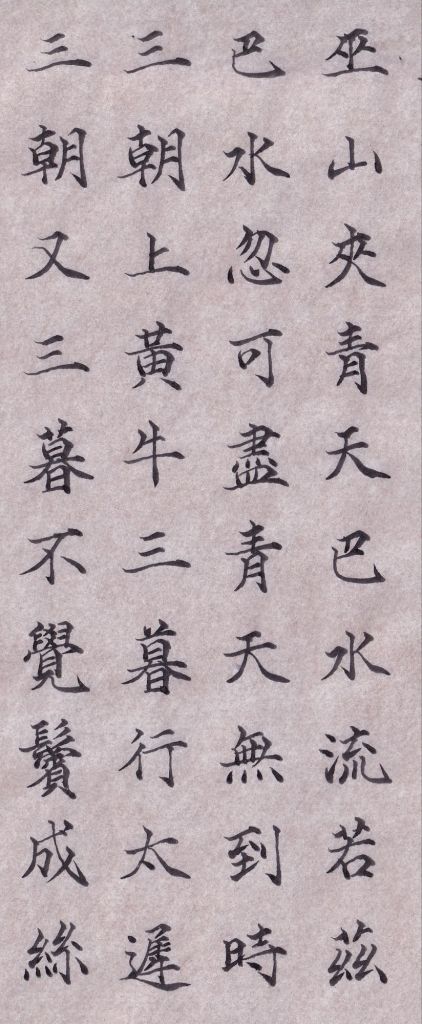 巫山夾青天巴水流若茲
巴水忽可盡青天無到時
三朝上黃牛三暮行太遲
三朝又三暮不覺鬢成絲